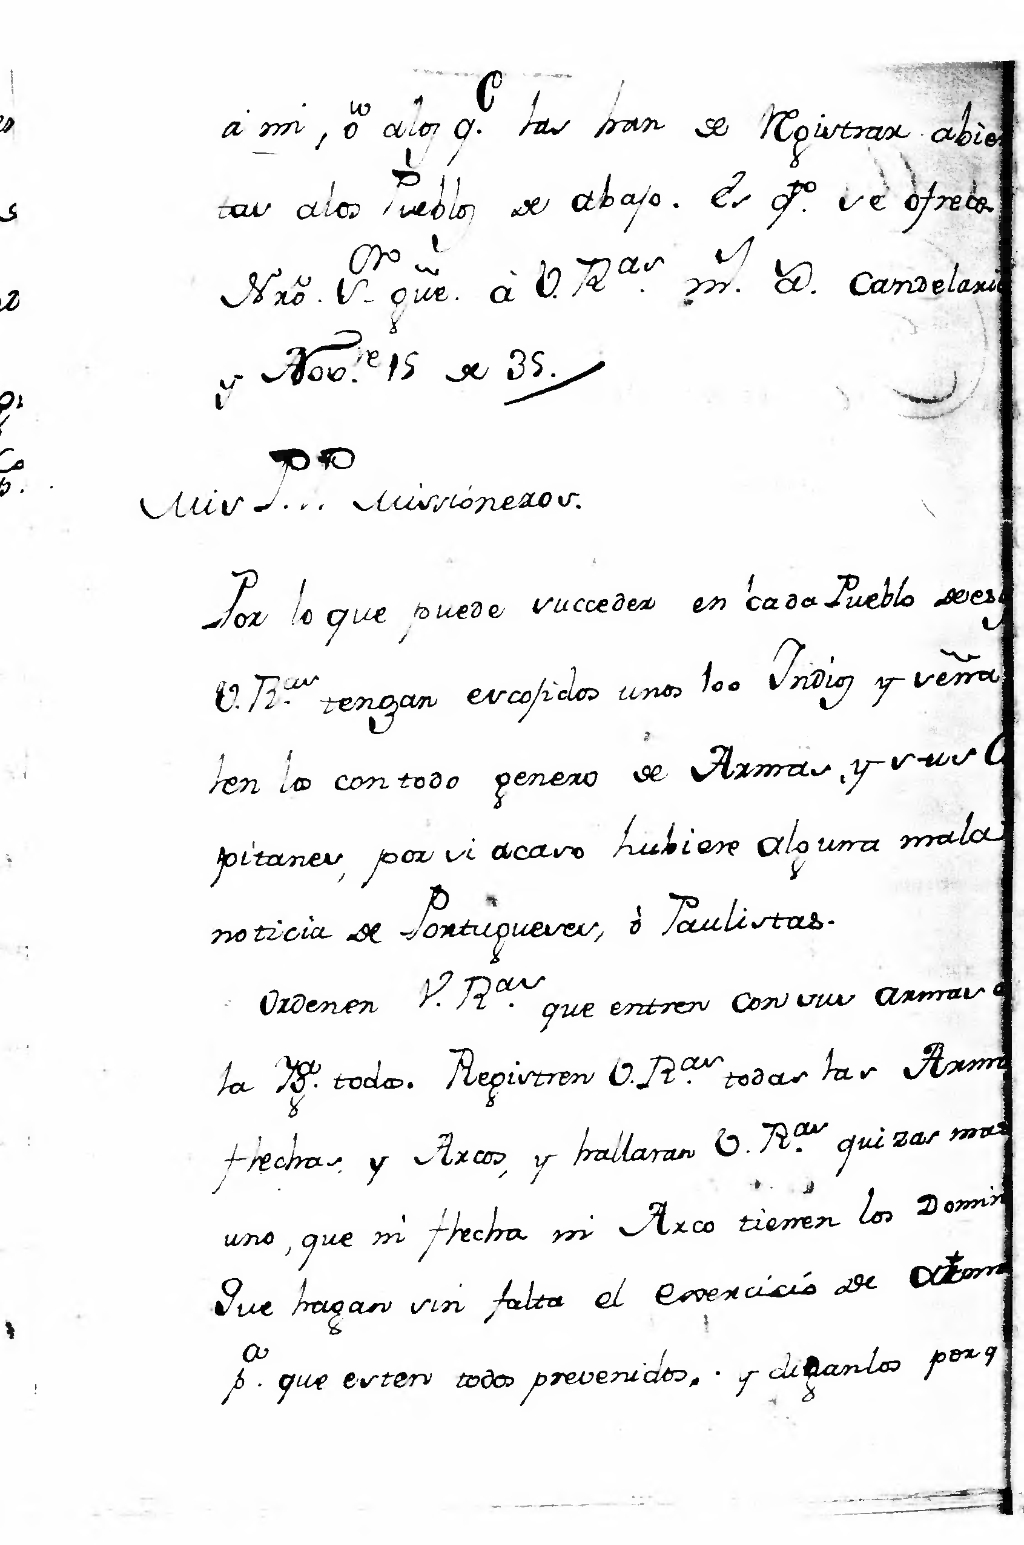 a mi, ò alos q.e las han de Registrar abier
tas alos Pueblos de abajo. Es q.to se ofrece
Nrō. S.or gūe. à V. R.as m.s a.s Candelaria
y Nov.e 15 de 35.
Mis P.P. Missioneros.
Por lo que puede succeder en cada Pueblo de es
V. R.as tengan escojidos unos 100 Indios y seña
len los con todo genero de Armas, y sus C
pitanes, por si acaso hubiere alguna mala
noticia de Portugueses, ò Paulistas.
Ordenen V. R.as que entren con sus armas a
la Yg.a todos. Registren V. R.as todas las Arma
flechas, y Arcos, y hallaran V. R.as quizas mas
uno, que ni flecha ni Arco tienen los Domin
Que hagan sin falta el exercicio de
p.a que esten todos prevenidos. y diganlos por q